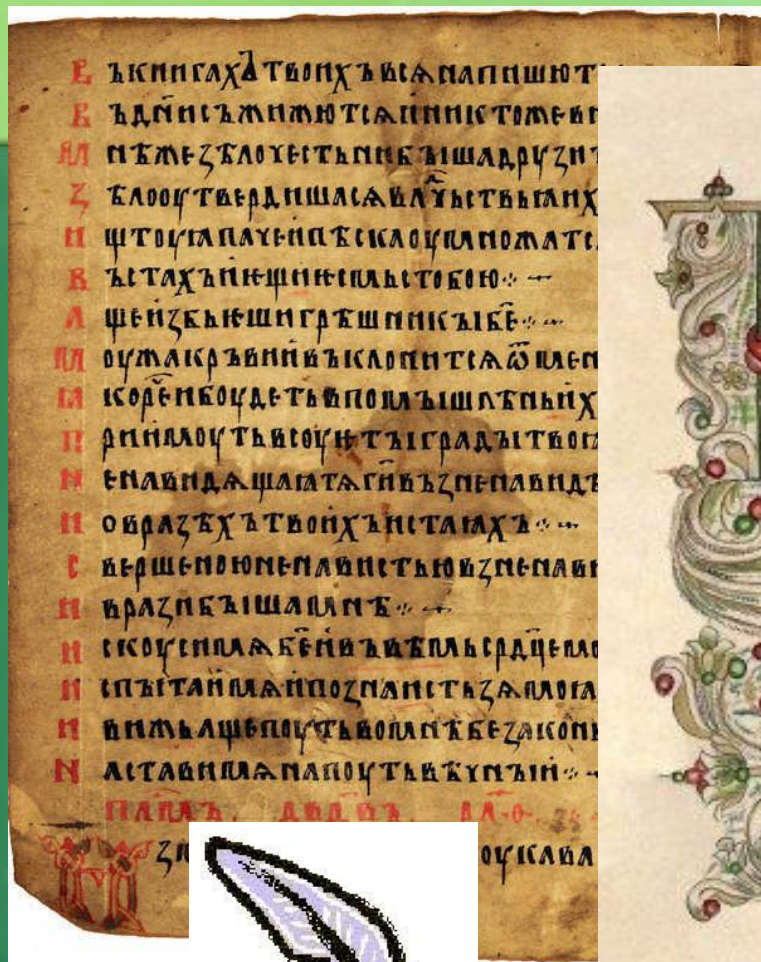 ВЪКНИГАХЪТВОИХЪВСѦНАПИШЮТ
ВЪДН҃ИСЪЖИЖЮТСѦИНИКТОЖЕВН
МНѢЖЕЗѢЛОЧЕСТЬНИБЫШАДРУЗИ
ЗѢЛООУТВЕРДИШАСѦВЛЧ҃ЬСТВЬꙖИХ
ИШТОУꙖПАЧЕИПѢСКАОУМНОЖАТС
ВЪСТАХЪИѤЩИѤСМЬСТОБОЮ
АЩЕИЗБЬѤШИГРѢШНИКЫБ҃Е
МОУЖАКРЪВИИВЪКЛОНИТСѦѾМЕН
ꙖКОРЕ҃НИБОУДЕТЬВПОМЫШЛѢНЬИХ
ПРИИМОУТЬВСОУѤТЫГРАДЫТВОꙖ
НЕНАВИДѦЩАꙖТѦГ҃ИВЪЗНЕНАВИДѢ
ИОВРАЗѢХЪТВОИХЪИСТАꙖХЪ
СВЕРШЕНОЮНЕНАВИСТЬЮВЗНЕНАВИ
ИВРАЗИБЫШАМНѢ
ИСКОУСИМѦБ҃ЕИВЪВѢМЬСРДЦ҃ЕМО
ИСПЫТАИМѦИПОЗНАИСТЬЗѦМОꙖ
ИВИЖЬАЩЕПОУТЬВОМНѢБЕЗАКОНЬ
НАСТАВИМѦНАПОУТЬВѢЧНЫИ
ОУКАВА